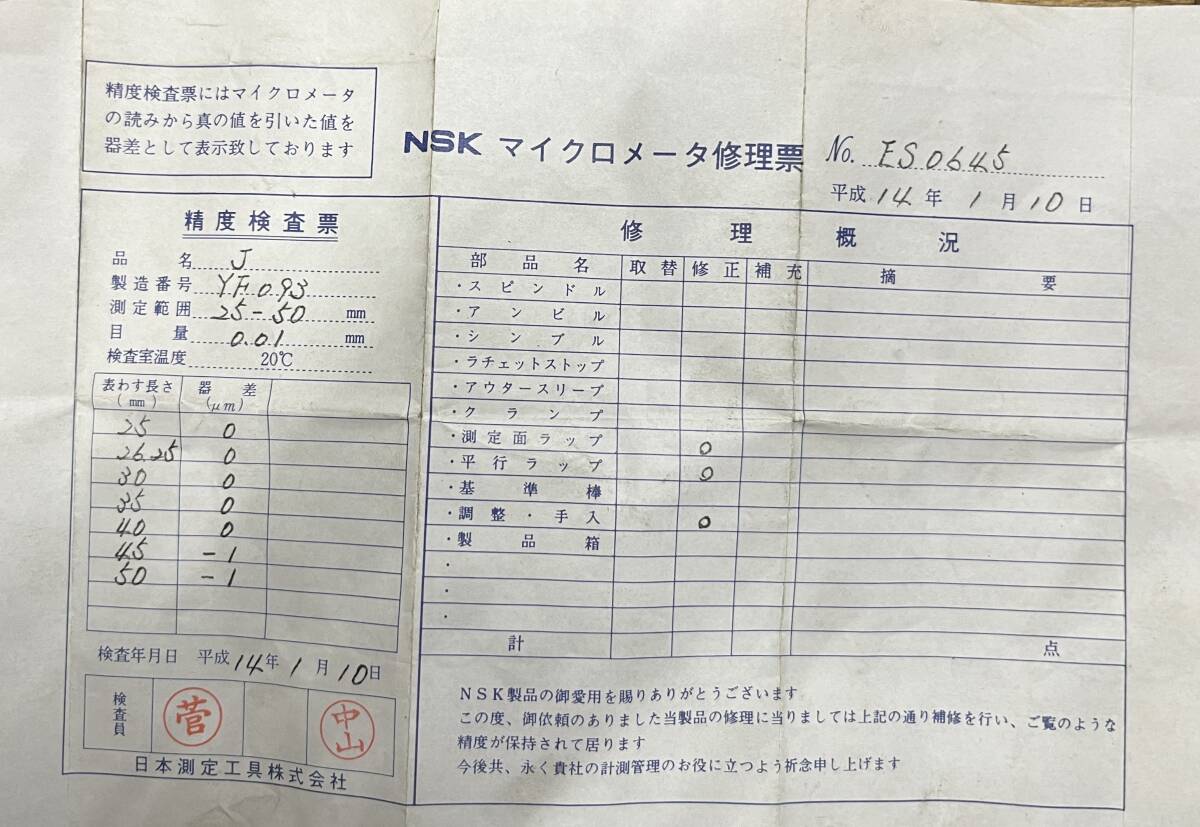 精度検査票にはマイクロメータ
の読みから真の値を引いた値を
器差として表示致しております
NSK マイクロメータ修理票
No. ES0645
平成 14 年 1 月 10 日
精度検査票
品名 J
製造番号 YF093
測定範囲 25-50 mm
目量 0.01 mm
検査室温度 20℃
表わす長さ(mm) 器差(μm)
25 0
26.25 0
30 0
35 0
40 0
45 -1
50 -1
検査年月日 平成 14 年 1 月 10 日
検査員 菅 中山
日本測定工具株式会社
修理概況
部品名 取替 修正 補充 摘要
・スピンドル
・アンビル
・シンブル
・ラチェットストップ
・アウタースリーブ
・クランプ
・測定面ラップ ○
・平行ラップ ○
・基準棒
・調整・手入 ○
・製品箱
・
・
・
計 点
NSK製品の御愛用を賜りありがとうございます
この度、御依頼のありました当製品の修理に当りましては上記の通り補修を行い、ご覧のような
精度が保持されて居ります
今後共、永く貴社の計測管理のお役に立つよう祈念申し上げます